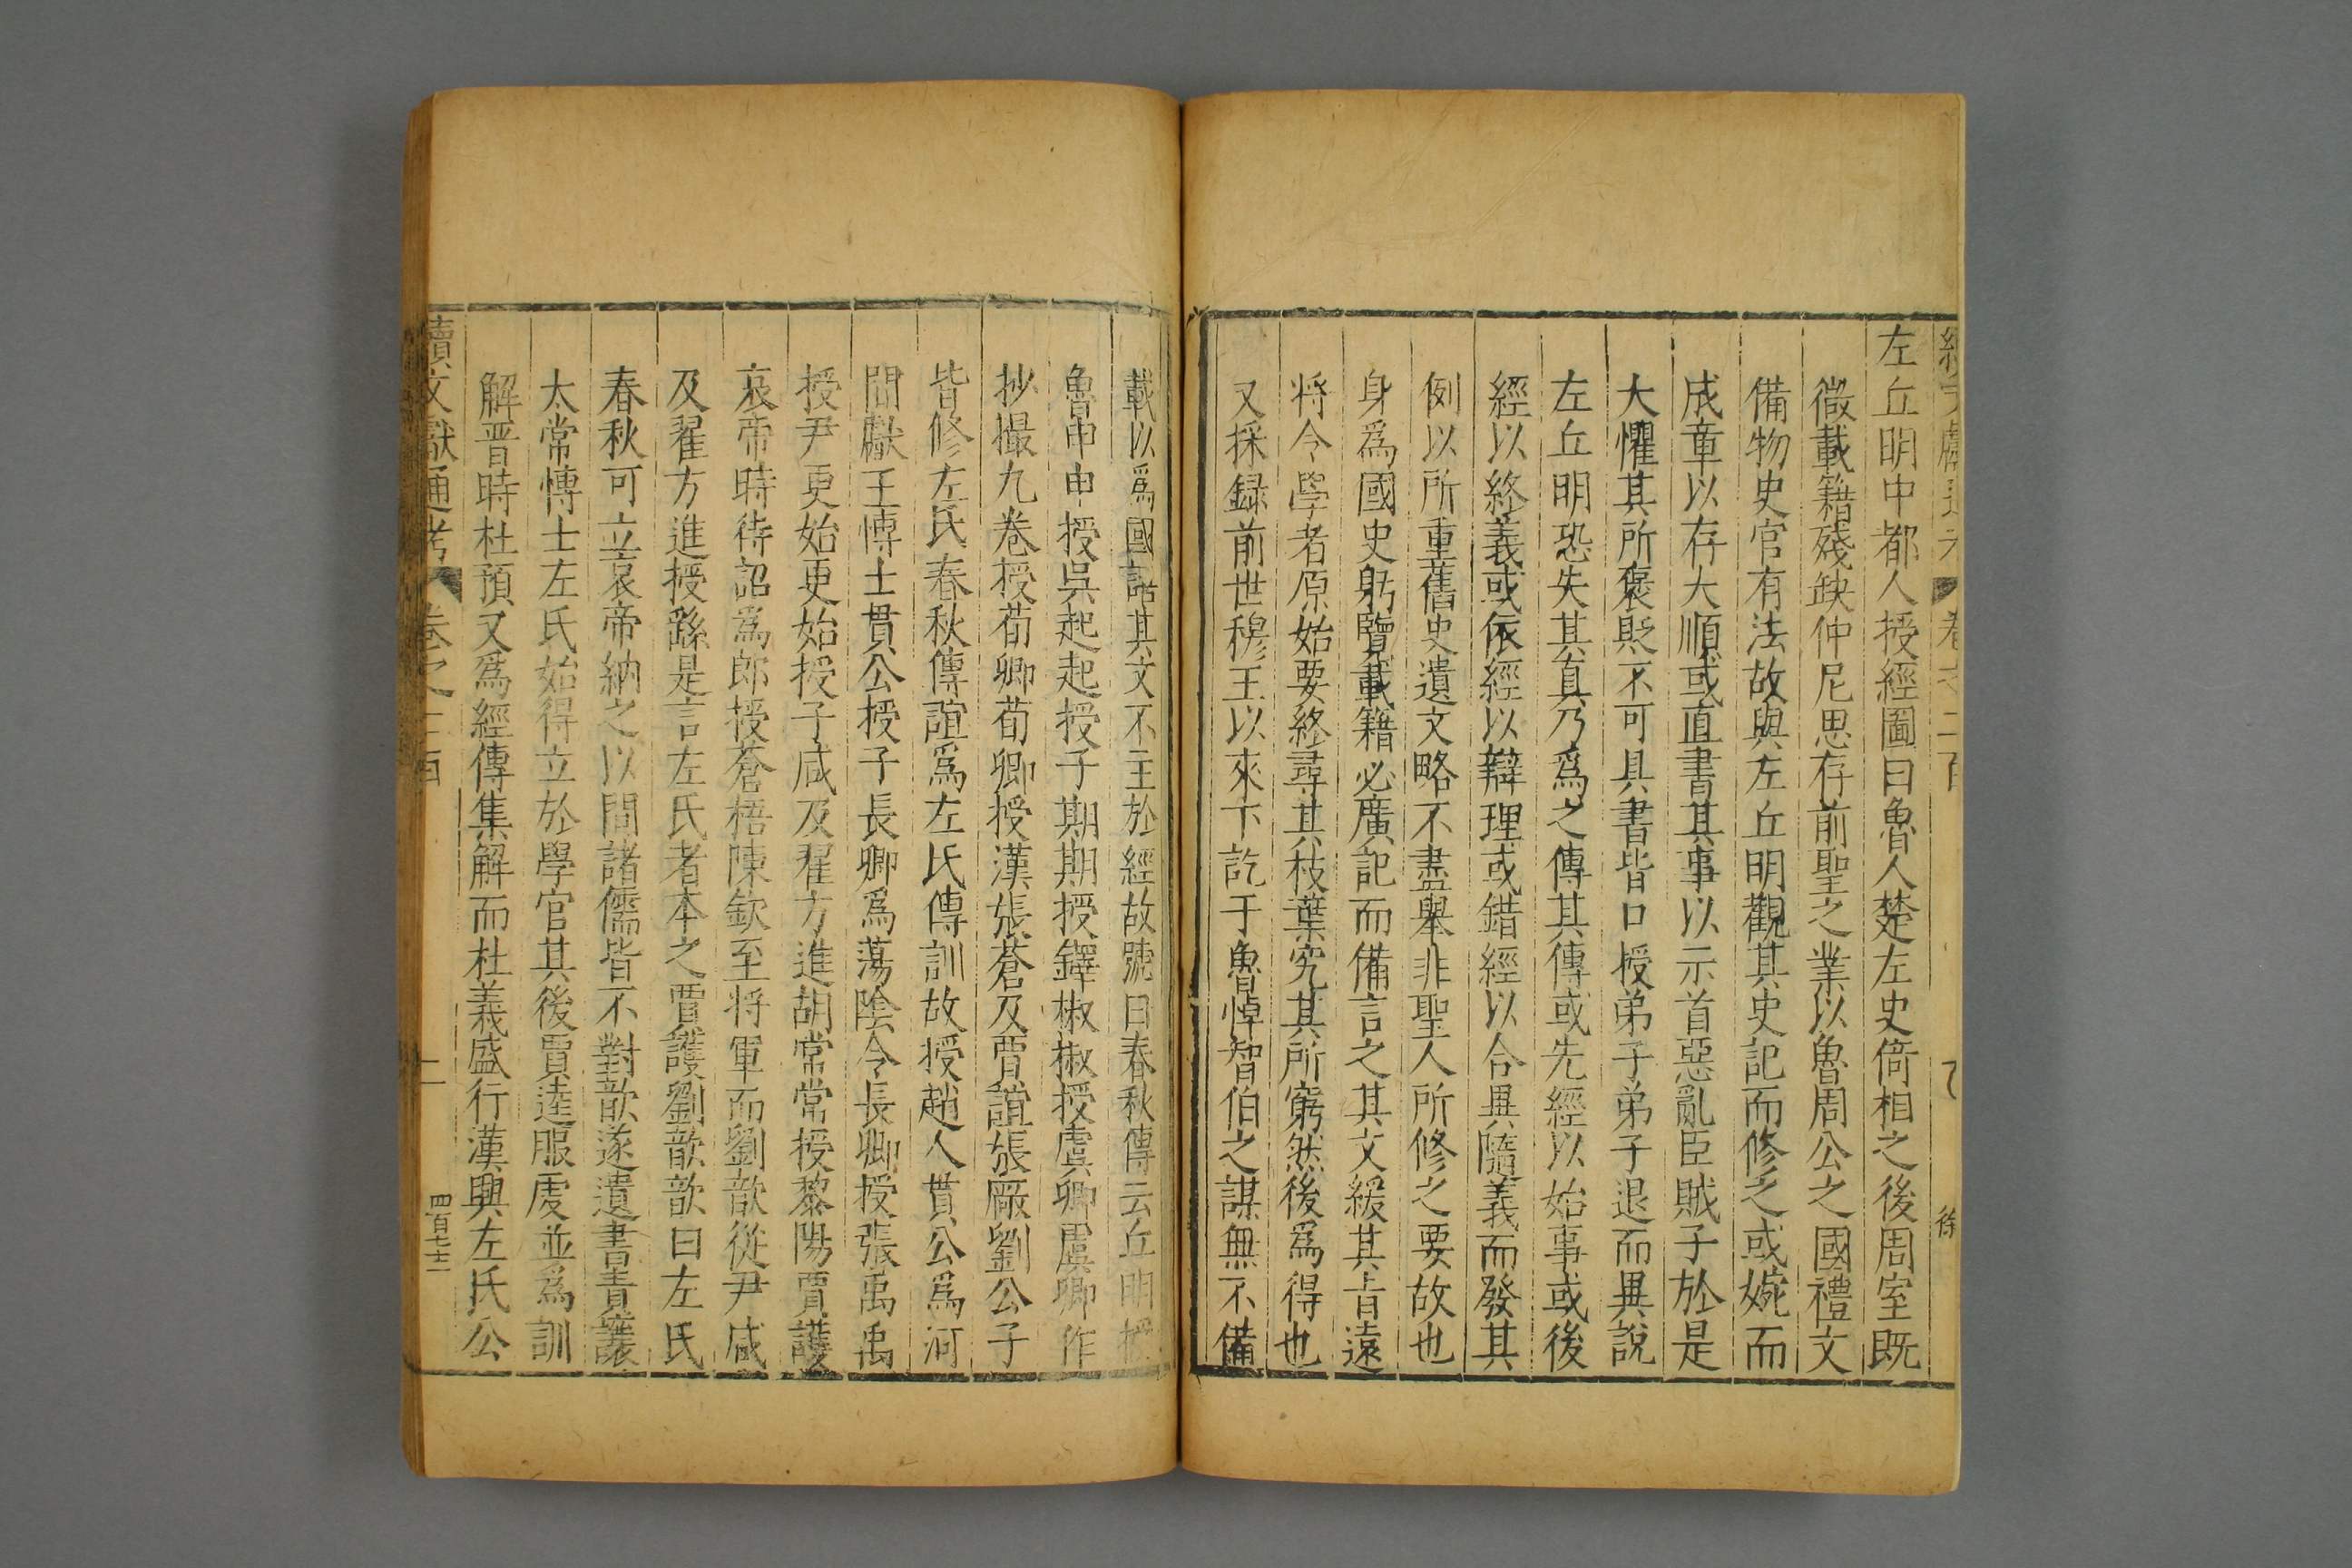 左丘明中都人授經圖曰魯人楚左史倚相之後周室既
微載籍殘缺仲尼思存前聖之業以魯周公之國禮文
備物史官有法故與左丘明觀其史記而修之或婉而
成章以存大順或直書其事以示首惡亂臣賊子於是
大懼其所褒貶不可具書皆口授弟子弟子退而異說
左丘明恐失其真乃爲之傳其傳或先經以始事或後
經以終義或依經以辯理或錯經以合異隨義而發其
例以所重舊史遺文略不盡舉非聖人所修之要故也
身爲國史躬覽載籍必廣記而備言之其文緩其旨遠
将令學者原始要終尋其枝葉究其所窮然後爲得也
又採録前世穆王以來下訖于魯悼智伯之謀無不備
載以爲國語其文不主於經故號曰春秋傳云丘明授
魯申申授吳起起授子期期授鐸椒椒授虞卿虞卿作
抄撮九卷授荀卿荀卿授漢張蒼及賈誼張敞劉公子
皆修左氏春秋傳誼爲左氏傳訓故授趙人貫公爲河
間獻王博士貫公授子長卿爲蕩陰令長卿授張禹禹
授尹更始更始授子咸及翟方進胡常常授黎陽賈護
哀帝時待詔爲郎授蒼梧陳欽至将軍而劉歆從尹咸
及翟方進授繇是言左氏者本之賈護劉歆歆曰左氏
春秋可立哀帝納之以問諸儒皆不對歆遂遺書責讓
太常博士左氏始得立於學官其後賈逵服虔並爲訓
解晋時杜預又爲經傳集解而杜義盛行漢興左氏公
續文獻通考 卷之二百 二 四百七十三